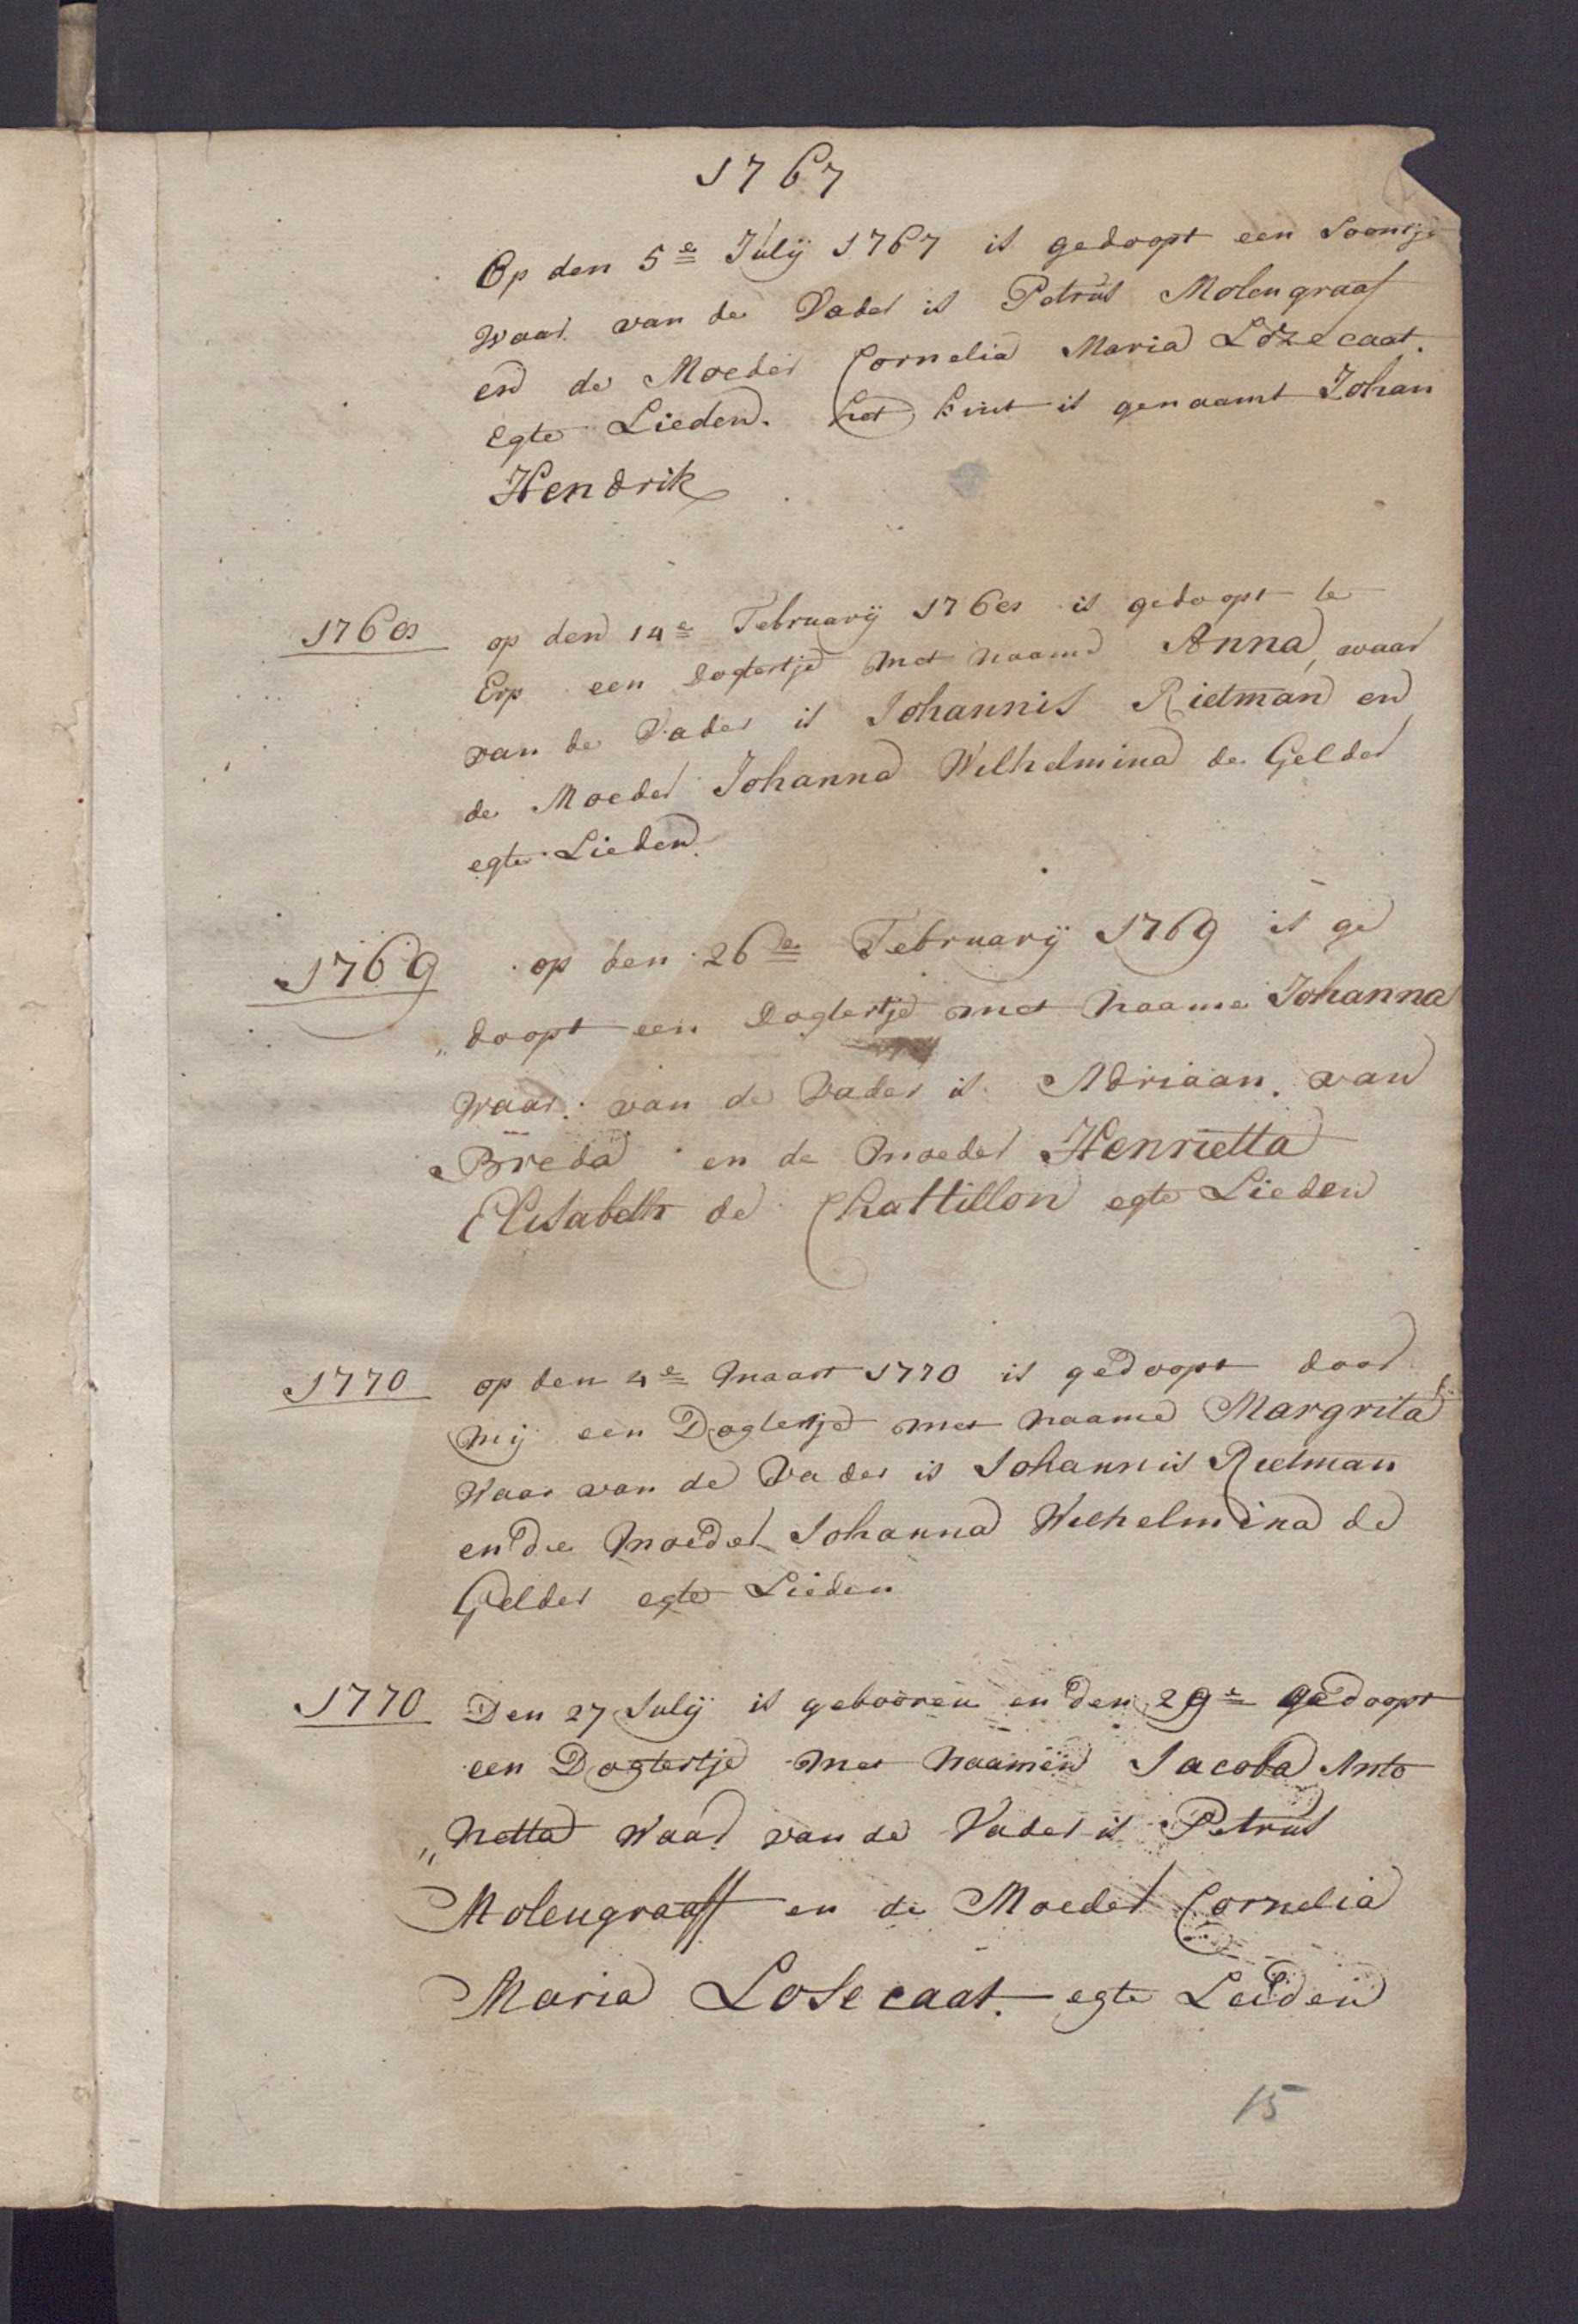 1767
Op den 5e Julij 1767 is gedoopt een Soontje
Waar van de Vader is Petrus Molengraaf
en de Moeder Cornelia Maria Lozecaat.
Egte Lieden. het kint is genaamt Johan
Hendrik
1768 op den 14e Februarij 1768 is gedoopt te
Erp een dogtertje met naame Anna, waar
van de Vader is Johannis Rietman en
de Moeder Johanna Wilhelmina de Gelder
egte Lieden.
1769 op den 26e Februarij 1769 is ge
„ doopt een Dogtertje met Naame Johanna
Waar van de Vader is Adriaan van
Breda en de Moeder Henrietta
Elisabeth de Chattillon egte Lieden
1770 op den 4e Maart 1770 is gedoopt door
Mij een Dogtertje met Naame Margrita
Waar van de Vader is Johannis Rietman
en de Moeder Johanna Wilhelmina de
Gelder egte Lieden
1770 Den 27 Julij is gebooren en den 29e gedoopt
een Dogtertje met Naamen Jacoba Anto
„ Netta Waar van de Vader is Petrus
Molengraaff en de Moeder Cornelia
Maria Losecaat. egte Leiden
15